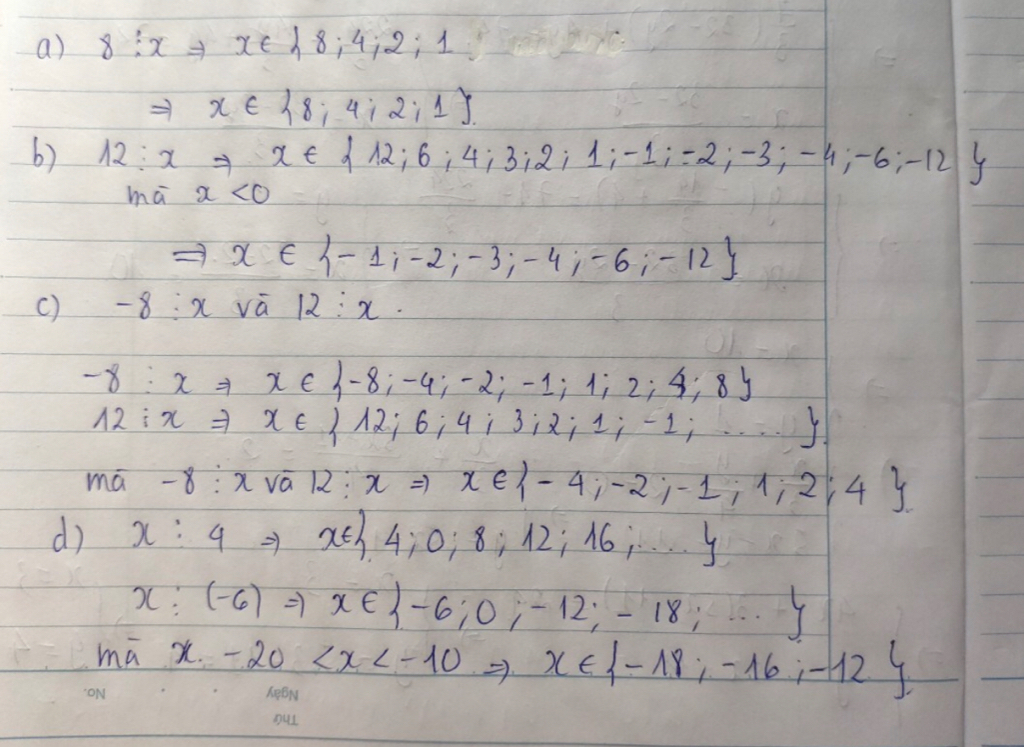 a) 8 ⋮ x ⇒ x ∈ { 8 ; 4 ; 2 ; 1
⇒ x ∈ { 8 ; 4 ; 2 ; 1 }
b) 12 ⋮ x ⇒ x ∈ { 12 ; 6 ; 4 ; 3 ; 2 ; 1 ; -1 ; -2 ; -3 ; -4 ; -6 ; -12 }
mà x < 0
⇒ x ∈ { -1 ; -2 ; -3 ; -4 ; -6 ; -12 }
c) -8 ⋮ x và 12 ⋮ x .
-8 ⋮ x ⇒ x ∈ { -8 ; -4 ; -2 ; -1 ; 1 ; 2 ; 4 ; 8 }
12 ⋮ x ⇒ x ∈ { 12 ; 6 ; 4 ; 3 ; 2 ; 1 ; -1 ; ..... }
mà -8 ⋮ x và 12 ⋮ x ⇒ x ∈ { -4 ; -2 ; -1 ; 1 ; 2 ; 4 }
d) x ⋮ 4 ⇒ x ∈ { 4 ; 0 ; 8 ; 12 ; 16 ; .... }
x ⋮ (-6) ⇒ x ∈ { -6 ; 0 ; -12 ; -18 ; ... }
mà x . -20 < x < -10 ⇒ x ∈ { -18 ; -16 ; -12 }
No. Ngày
Thứ